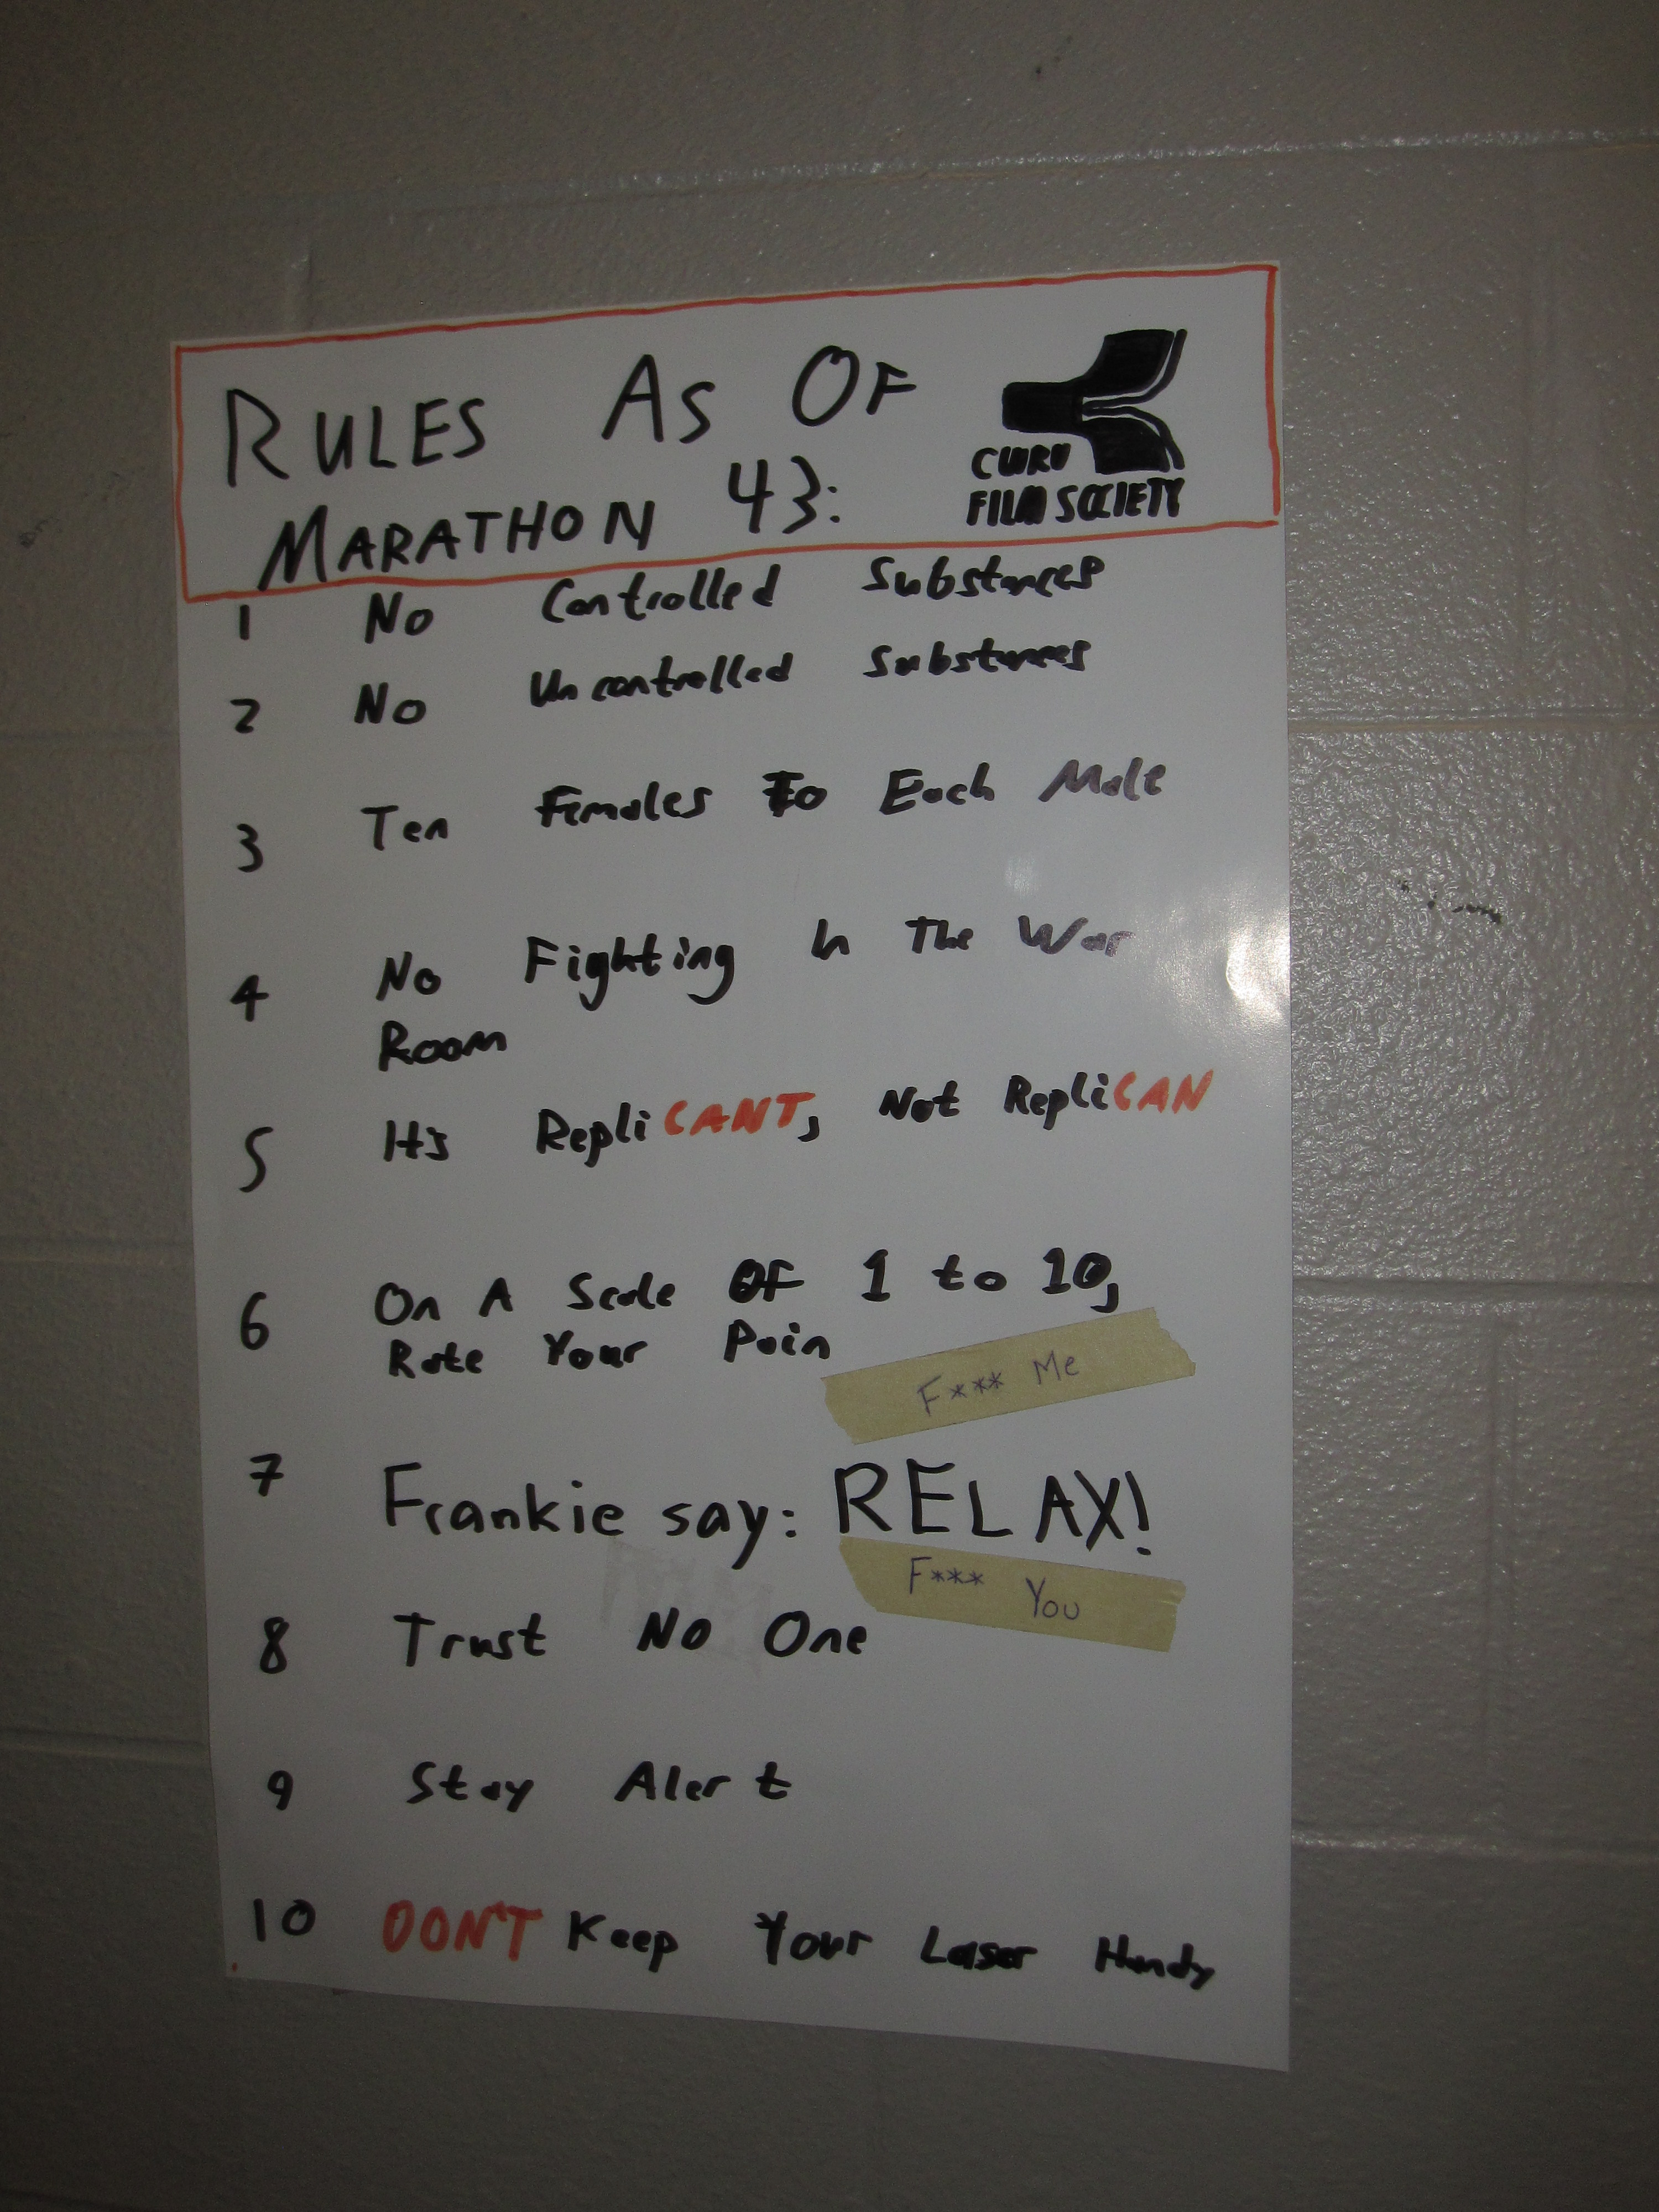 RULES AS OF
MARATHON 43:
CWRU
FILM SOCIETY
1 No Controlled Substances
2 No Uncontrolled Substances
3 Ten Females To Each Male
4 No Fighting In The War
Room
5 It's RepliCANT, Not RepliCAN
6 On A Scale Of 1 to 10,
Rate Your Pain
F*** Me
7 Frankie say: RELAX!
F*** You
8 Trust No One
9 Stay Alert
10 DON'T Keep Your Laser Handy